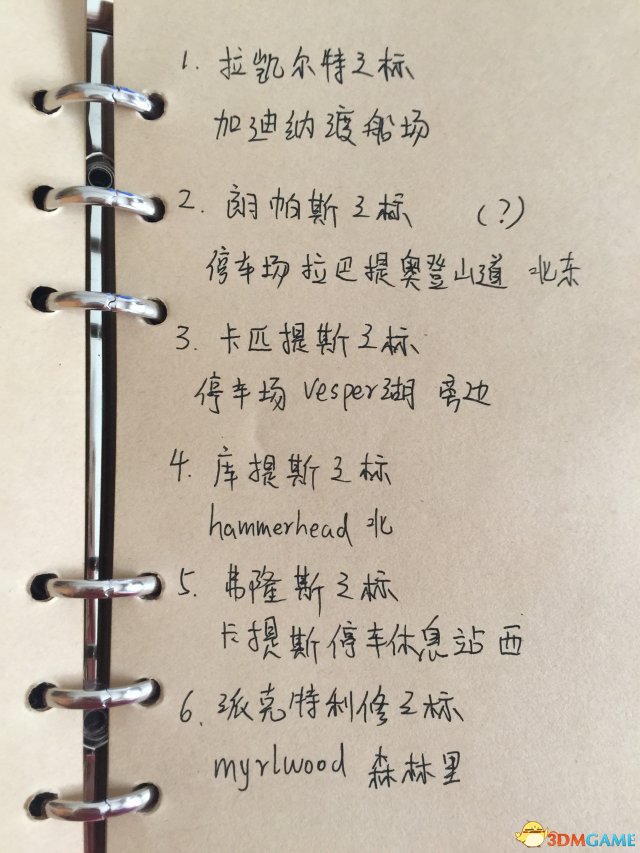 1. 拉凯尔特之标
加迪纳渡船场
2. 朗帕斯之标 (?)
停车场拉巴提奥登山道 北东
3. 卡匹提斯之标
停车场 Vesper湖 旁边
4. 库提斯之标
hammerhead 北
5. 弗隆斯之标
卡提斯停车休息站 西
6. 派克特利修之标
myrlwood 森林里
3DMGAME